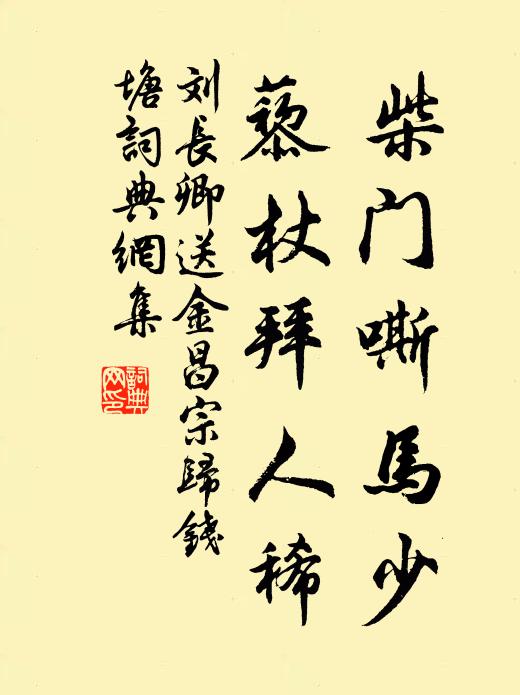 柴门嘶馬少
藜杖拜人稀
刘長卿送金昌宗歸錢
塘詞典網集
詞典
网印